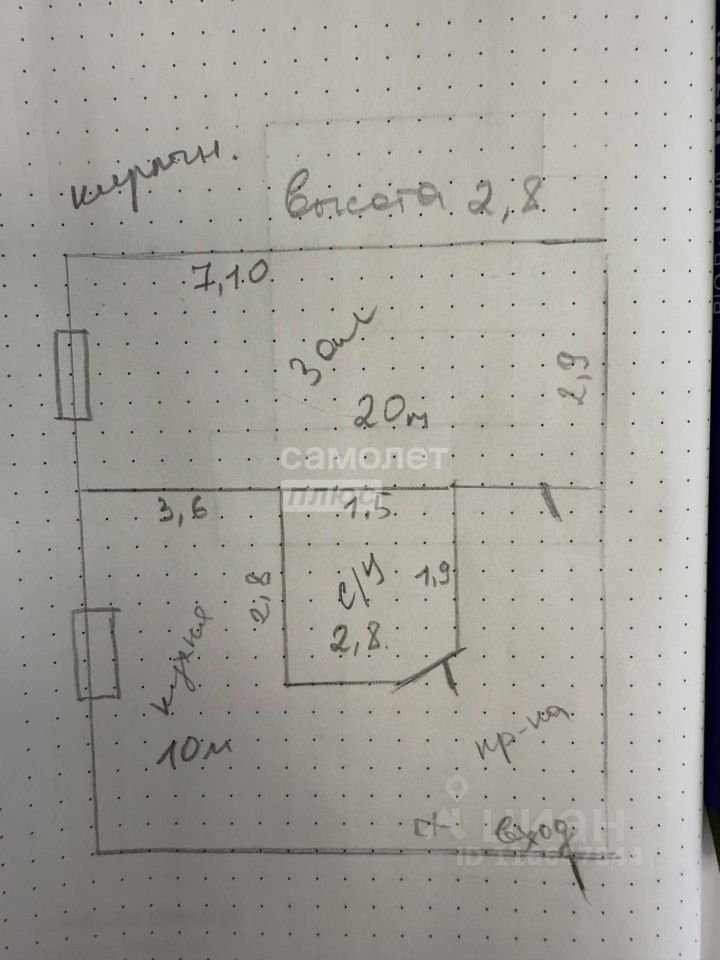 кирпичн.
высота 2,8
7,10
Зал
2,9
20м
самолет
плюс
3,6
1.5
2,8
1,9
с/у
2,8
кухня
10м
пр-ка
вход
циан